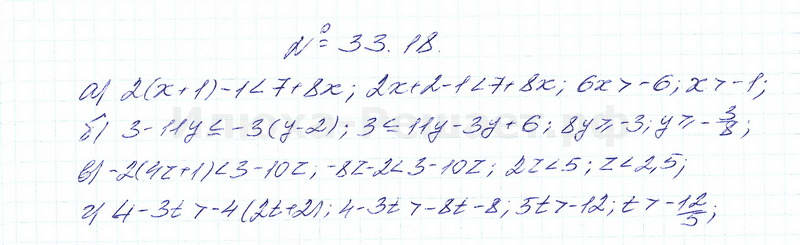 № 33.18.
а) 2(x+1)-1<7+8x; 2x+2-1<7+8x; 6x>-6; x>-1;
б) 3-11y≤-3(y-2); 3≤11y-3y+6; 8y≥-3; y≥-3/8;
в) -2(4z+1)<3-10z; -8z-2<3-10z; 2z<5; z<2,5;
г) 4-3t>-4(2t+2); 4-3t>-8t-8; 5t>-12; t>-12/5;